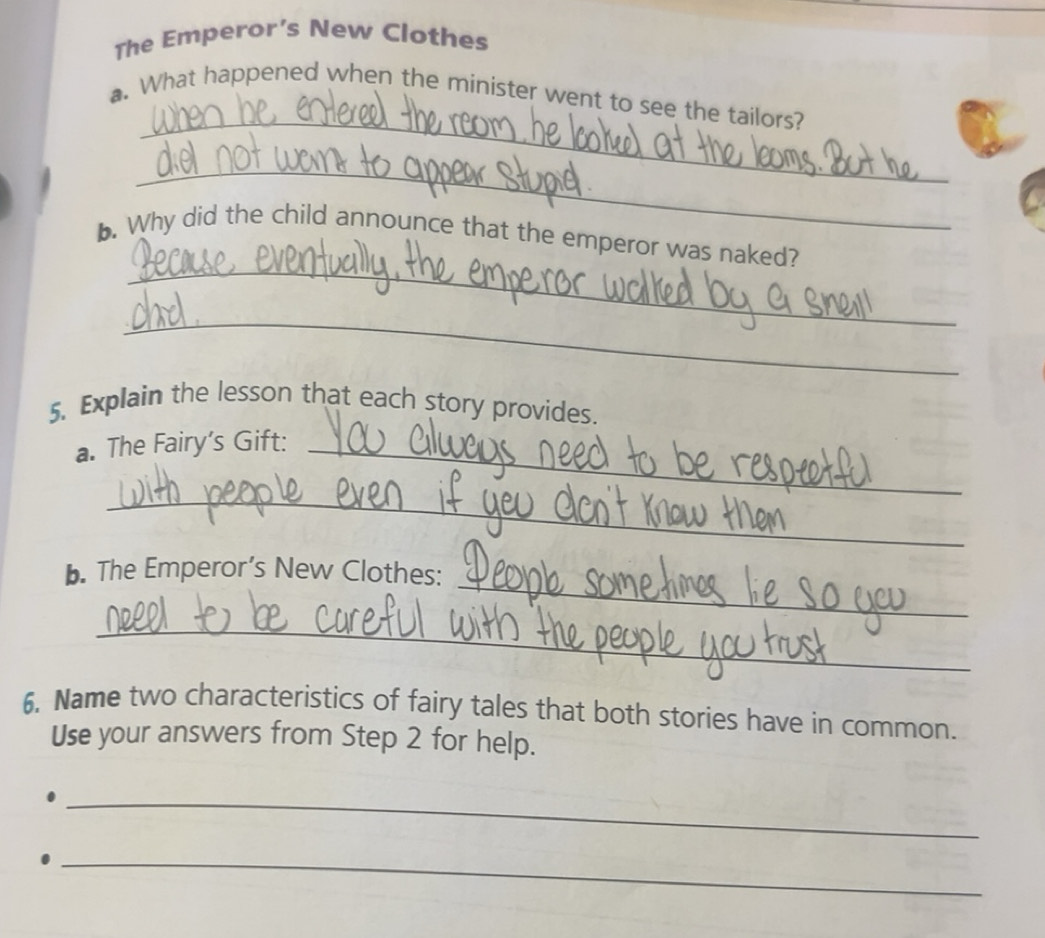 The Emperor's New Clothes
a. What happened when the minister went to see the tailors?
When he entered the room, he looked at the looms. But he
did not want to appear stupid.
b. Why did the child announce that the emperor was naked?
Because eventually, the emperor walked by a small
child.
5. Explain the lesson that each story provides.
a. The Fairy's Gift: You always need to be respectful
with people even if you don't know them
b. The Emperor's New Clothes: People sometimes lie so you
need to be careful with the people you trust
6. Name two characteristics of fairy tales that both stories have in common.
Use your answers from Step 2 for help.